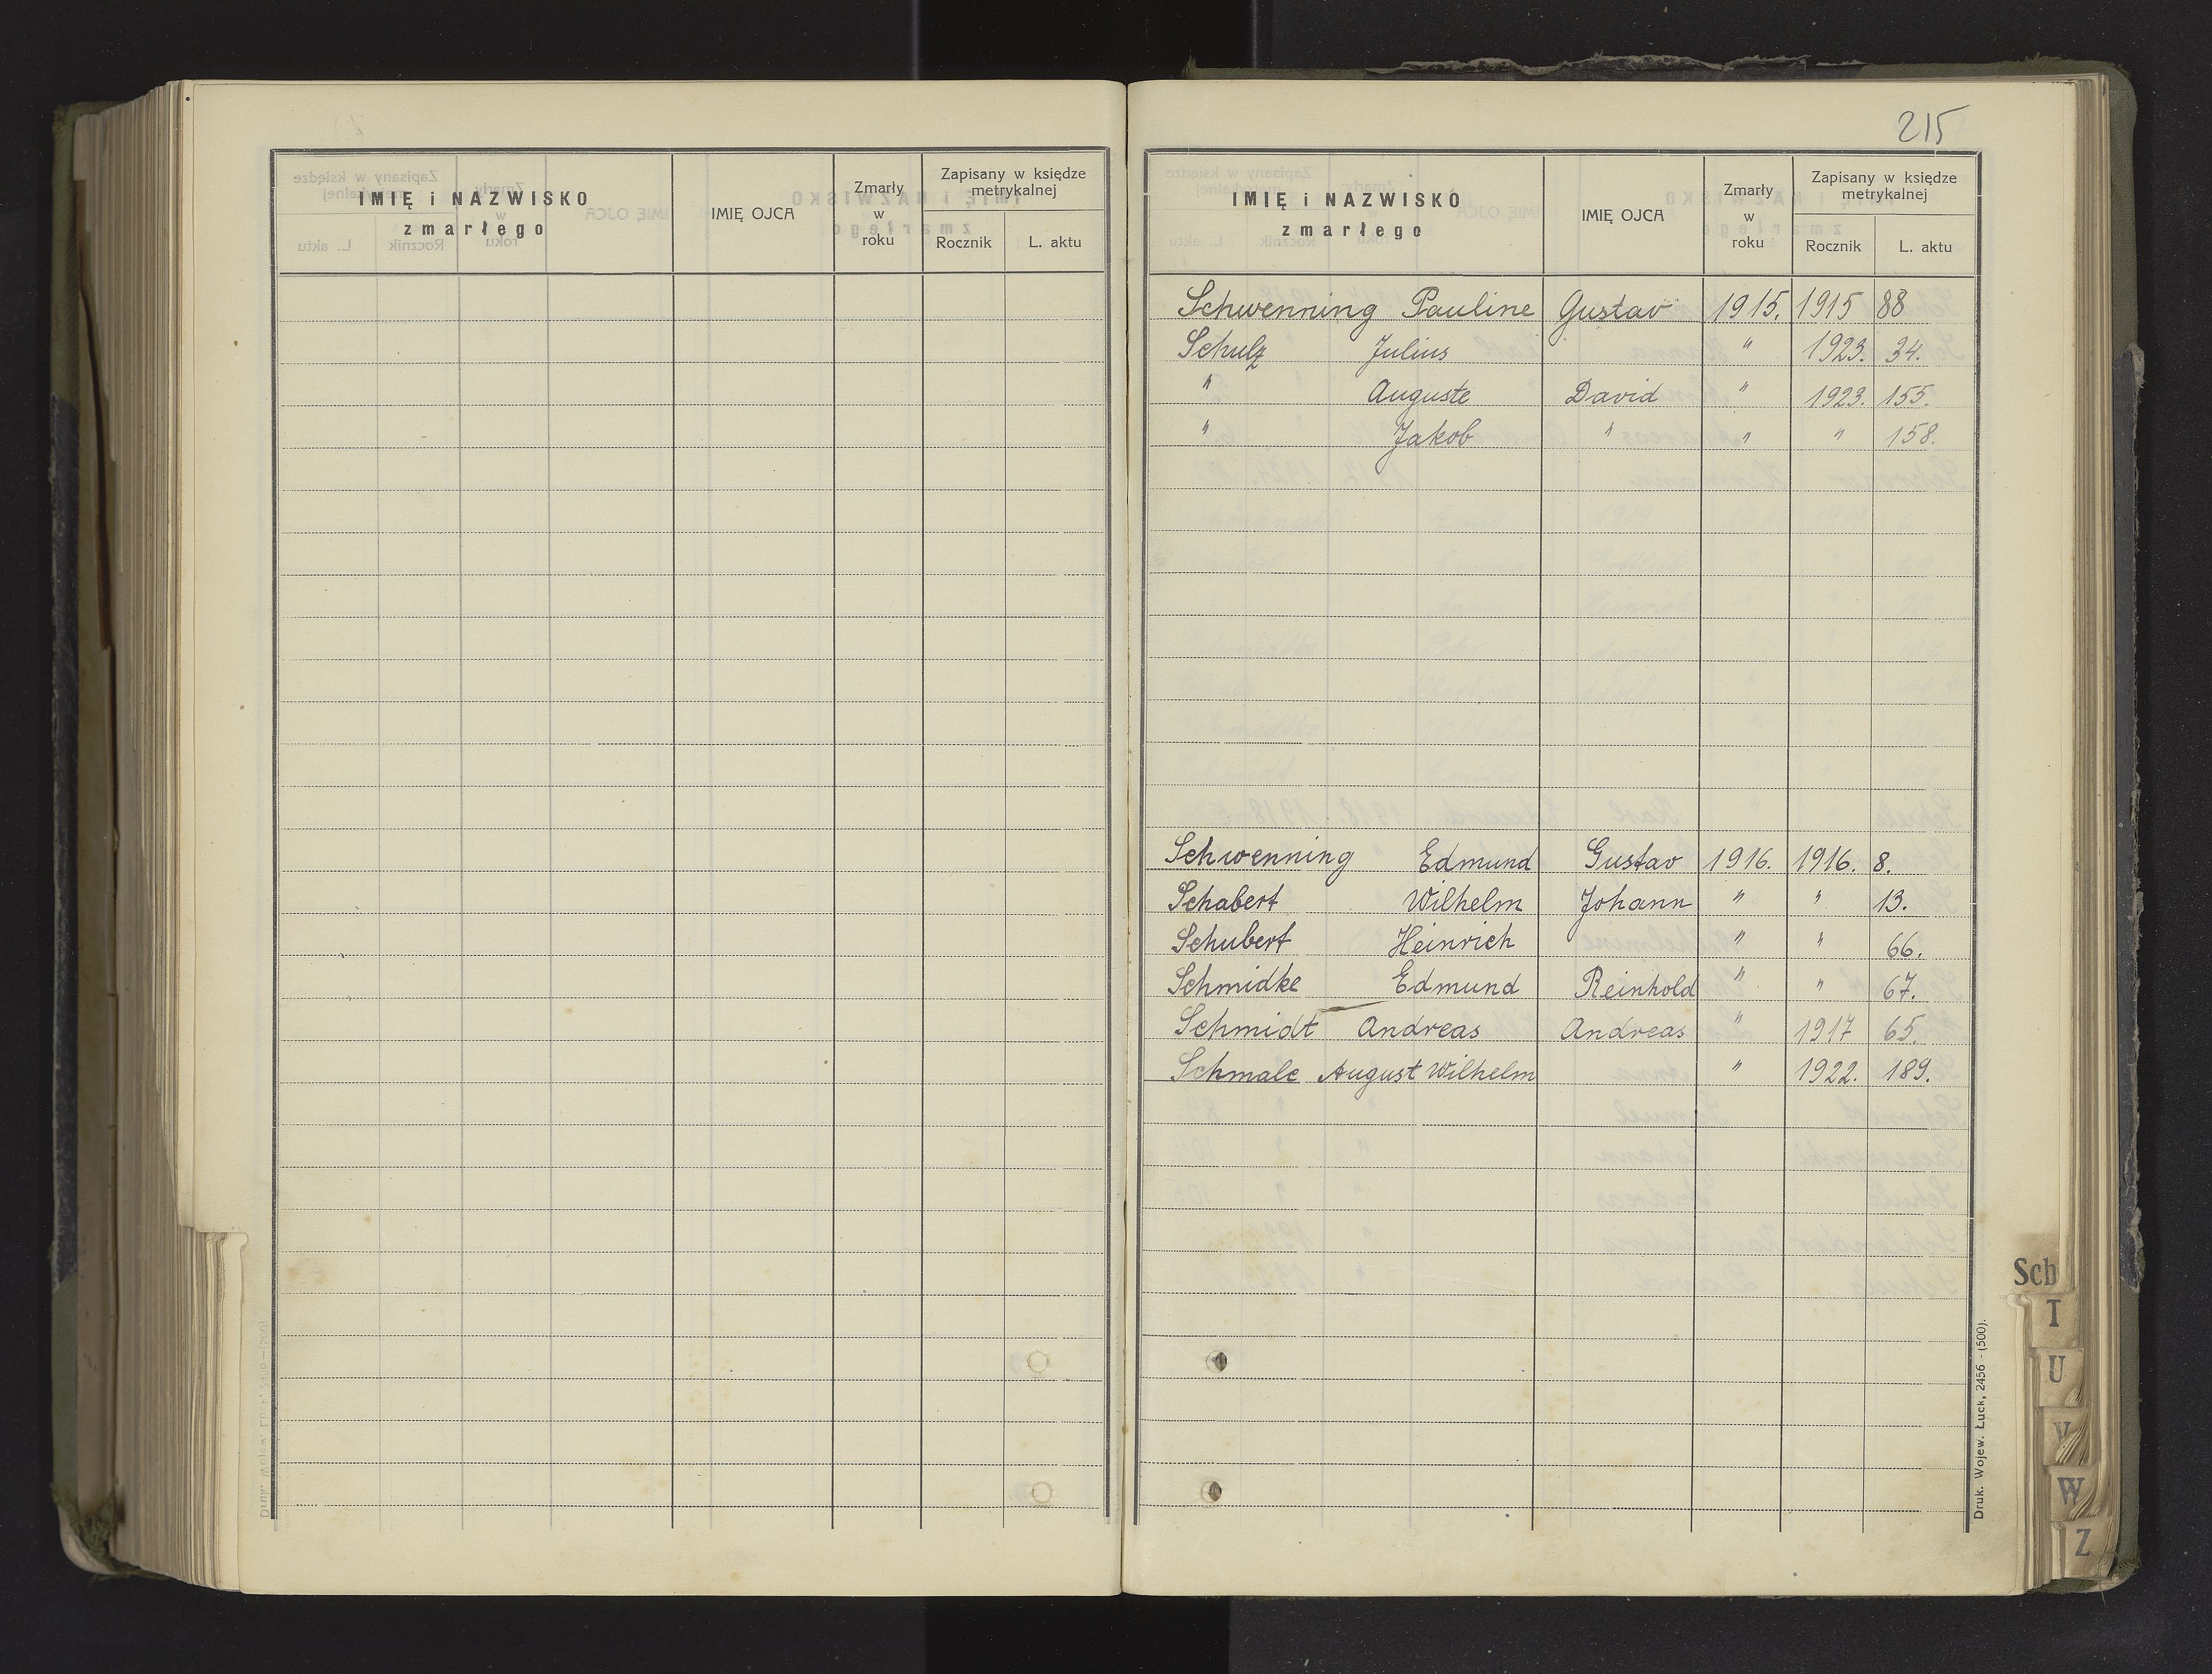 IMIĘ i NAZWISKO
zmarłego
IMIĘ OJCA
Zmarły
w
roku
Zapisany w księdze
metrykalnej
Rocznik
L. aktu
215
IMIĘ i NAZWISKO
zmarłego
IMIĘ OJCA
Zmarły
w
roku
Zapisany w księdze
metrykalnej
Rocznik
L. aktu
Schwenning Pauline Gustav 1915. 1915 88
Schulz Julius " 1923. 34.
" Auguste David " 1923. 155.
" Jakob " " " 158.
Schwenning Edmund Gustav 1916. 1916. 8.
Schabert Wilhelm Johann " " 13.
Schubert Heinrich " " 66.
Schmidke Edmund Reinhold " " 67.
Schmidt Andreas Andreas " 1917 65.
Schmale August Wilhelm " 1922. 189.
Sch
T
U
V
W
Z
Druk. Wojew. Łuck, 2456 - (500).